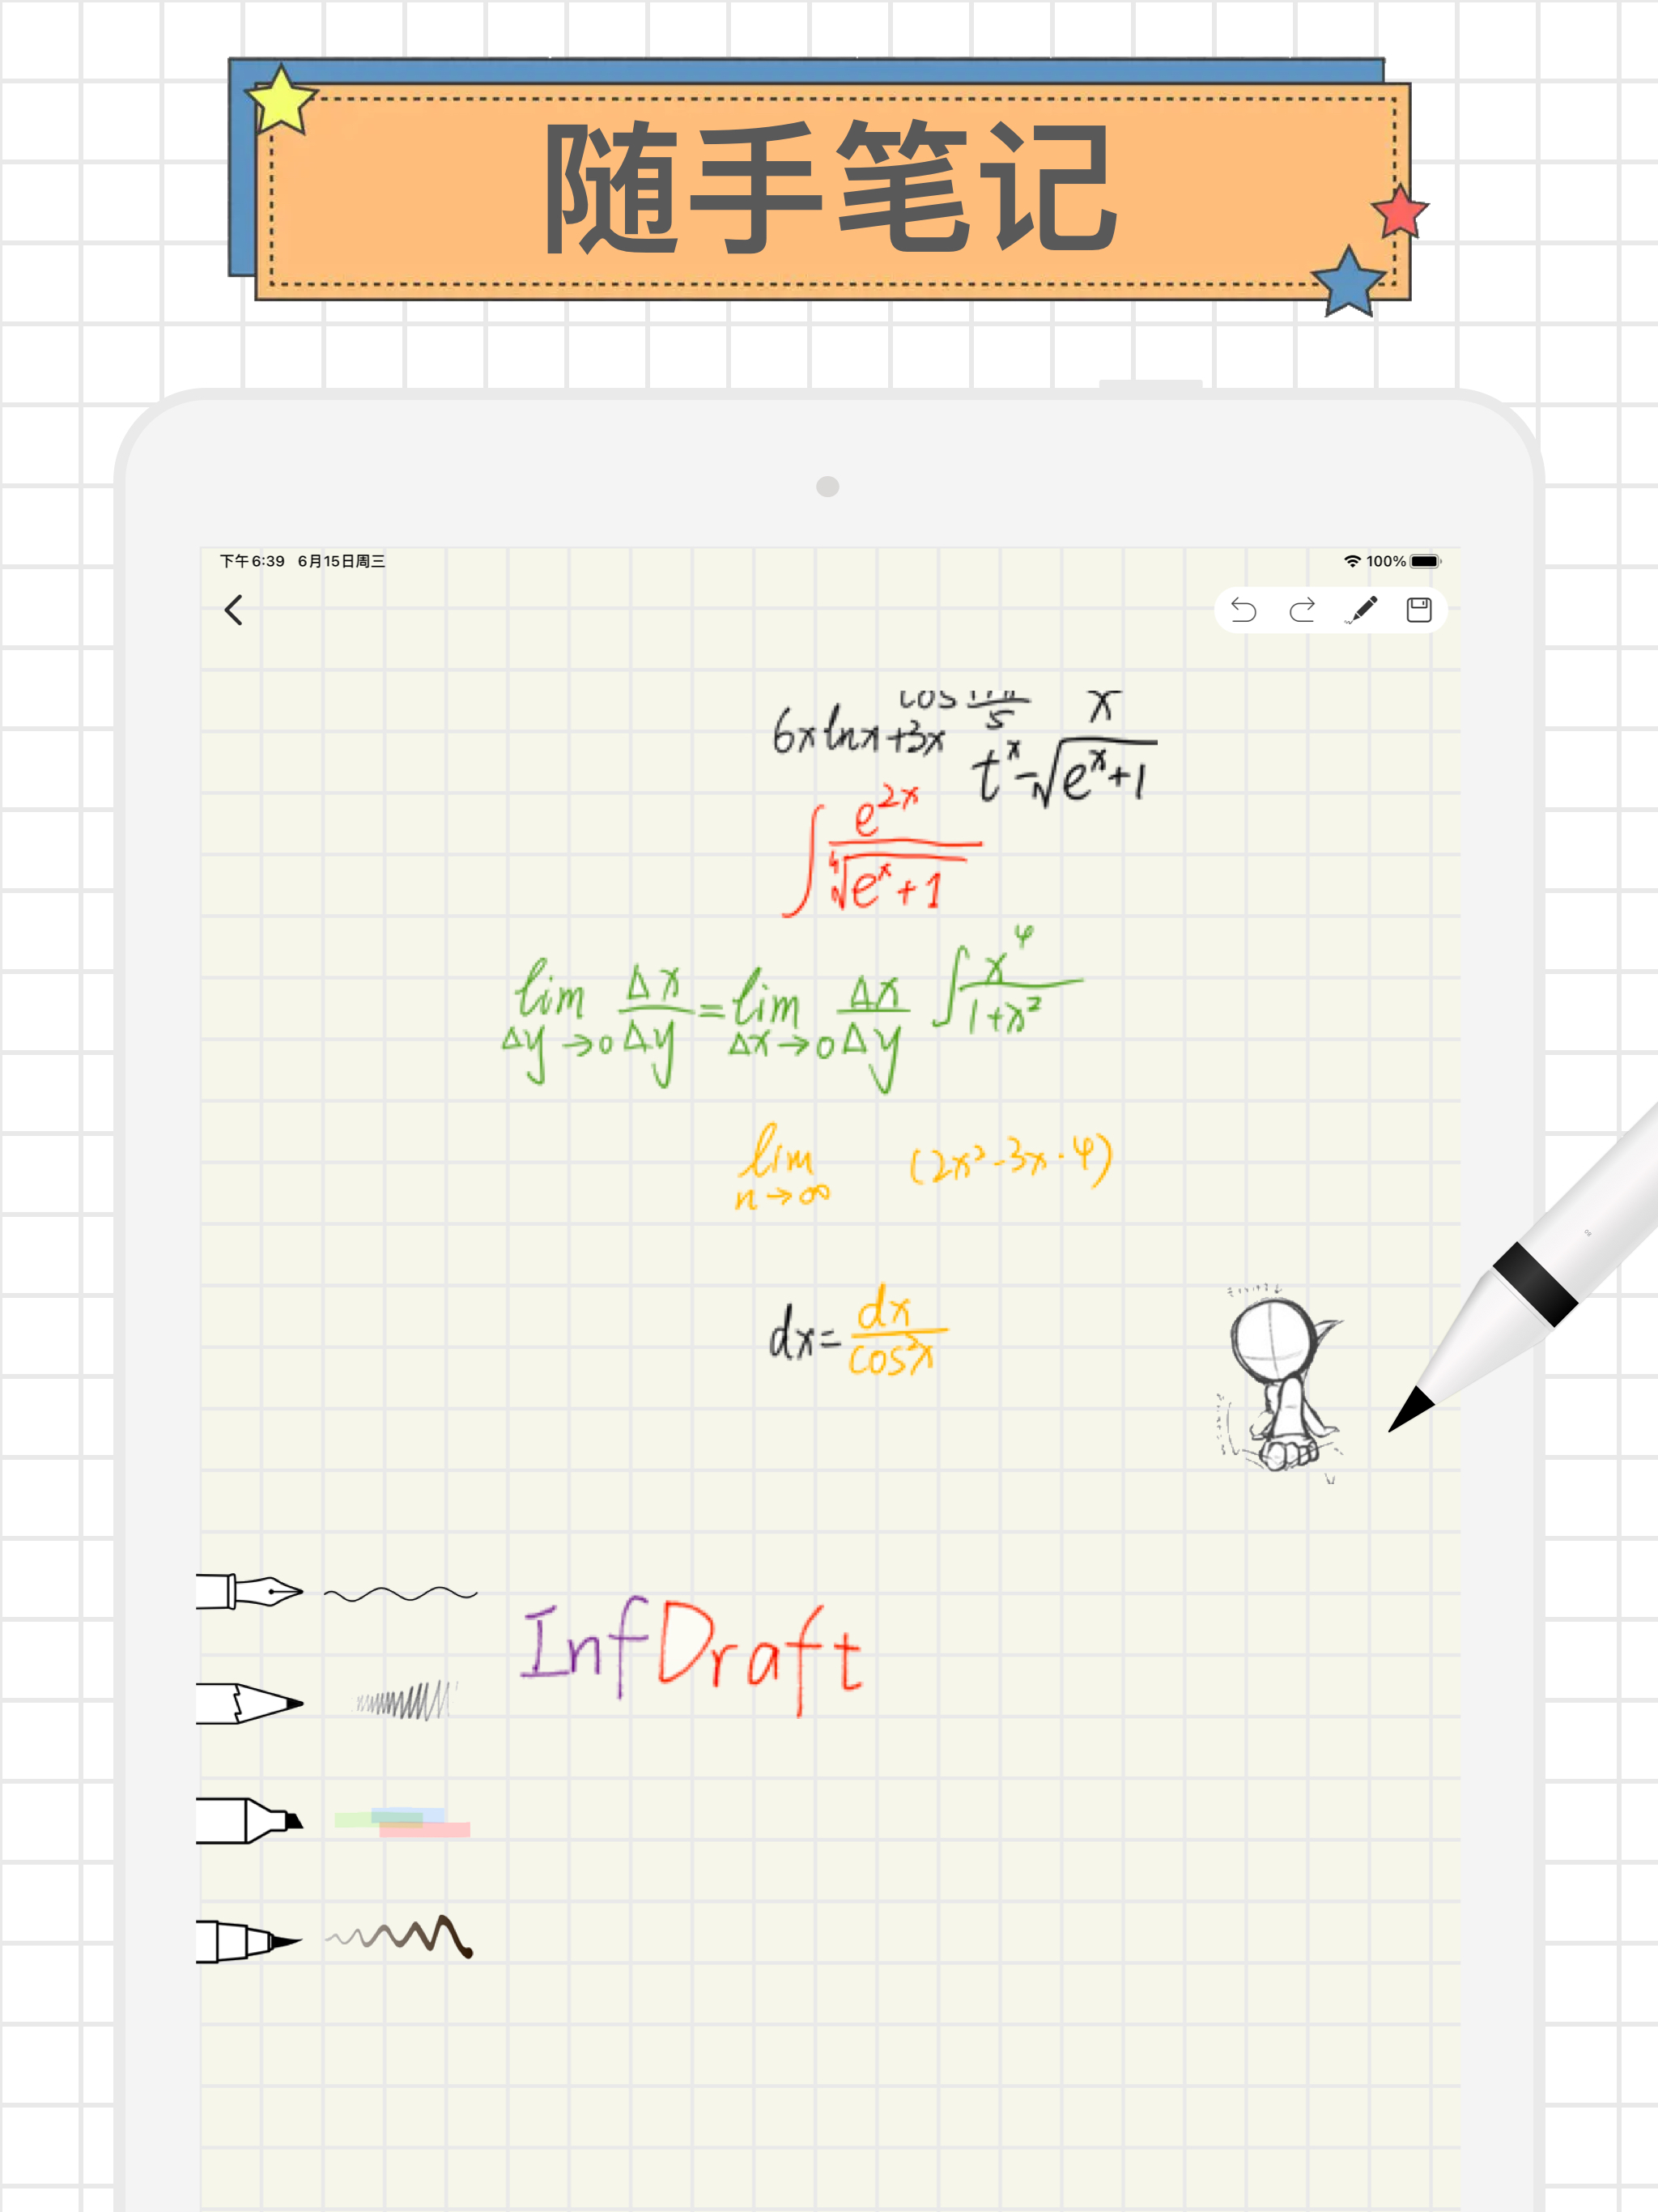 随手笔记
下午6:39 6月15日周三 100%
cos 5 x
6x ln x + 3x t^x - √(e^x + 1)
∫ e^{2x} / ∜(e^x + 1)
lim Δy→0 Δx/Δy = lim Δx→0 Δx/Δy ∫ x^4/(1+x²)
lim n→∞ (2x²-3x·4)
dx = dx/cos²x
InfDraft